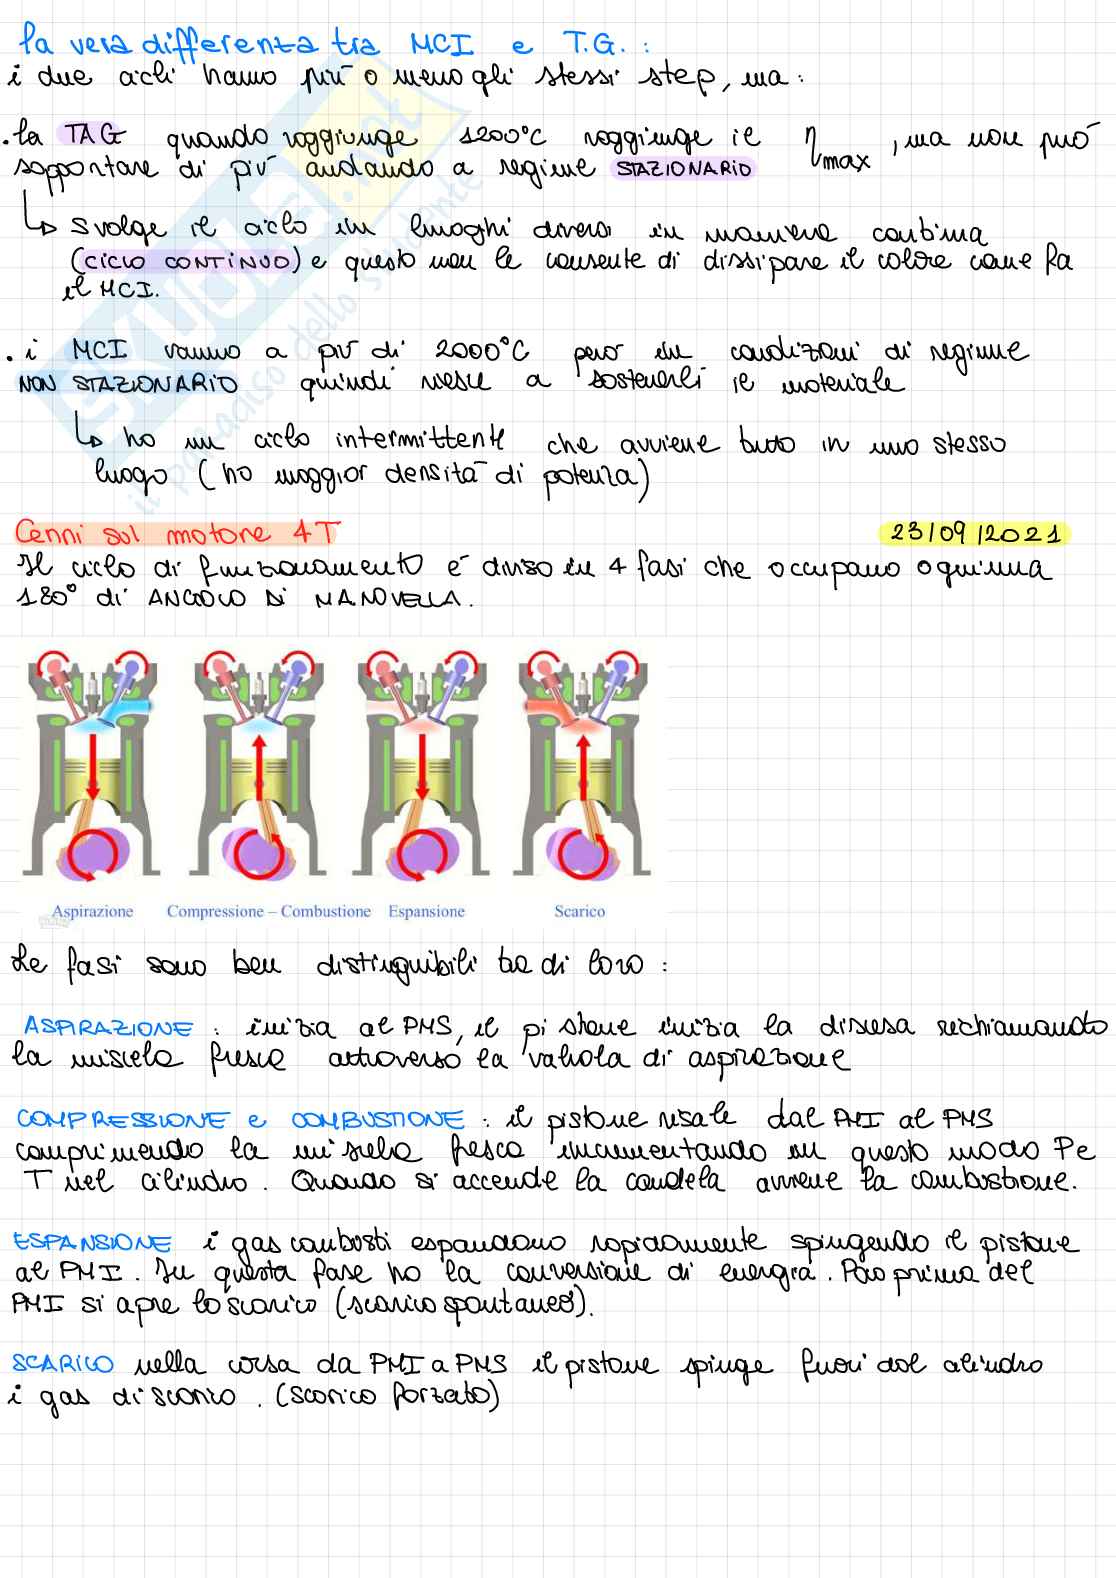 la vera differenza tra MCI e T.G. :
i due cicli hanno più o meno gli stessi step, ma :
. la TAG quando raggiunge 1200°C raggiunge il ηmax , ma non può
sopportare di più andando a regime STAZIONARIO
↳ svolge il ciclo in luoghi diversi in maniera continua
(CICLO CONTINUO) e questo non le consente di dissipare il calore come fa
il MCI.
. i MCI vanno a più di 2000°C però in condizioni di regime
NON STAZIONARIO quindi riesce a sostenerli il materiale
↳ ho un ciclo intermittente che avviene tutto in uno stesso
luogo (ho maggior densità di potenza)
Cenni sul motore 4T 23/09/2021
Il ciclo di funzionamento è diviso in 4 fasi che occupano ognuna
180° di ANGOLO DI MANOVELLA.
Aspirazione Compressione – Combustione Espansione Scarico
Le fasi sono ben distinguibili tra di loro :
ASPIRAZIONE : inizia al PMS, il pistone inizia la discesa richiamando
la miscela fresca attraverso la valvola di aspirazione
COMPRESSIONE e COMBUSTIONE : il pistone risale dal PMI al PMS
comprimendo la miscela fresca incrementando in questo modo P e
T nel cilindro. Quando si accende la candela avviene la combustione.
ESPANSIONE i gas combusti espandono rapidamente spingendo il pistone
al PMI. In questa fase ho la conversione di energia. Poco prima del
PMI si apre lo scarico (scarico spontaneo).
SCARICO nella corsa da PMI a PMS il pistone spinge fuori dal cilindro
i gas di scarico. (scarico forzato)
SKUOLA.net
il paradiso dello studente